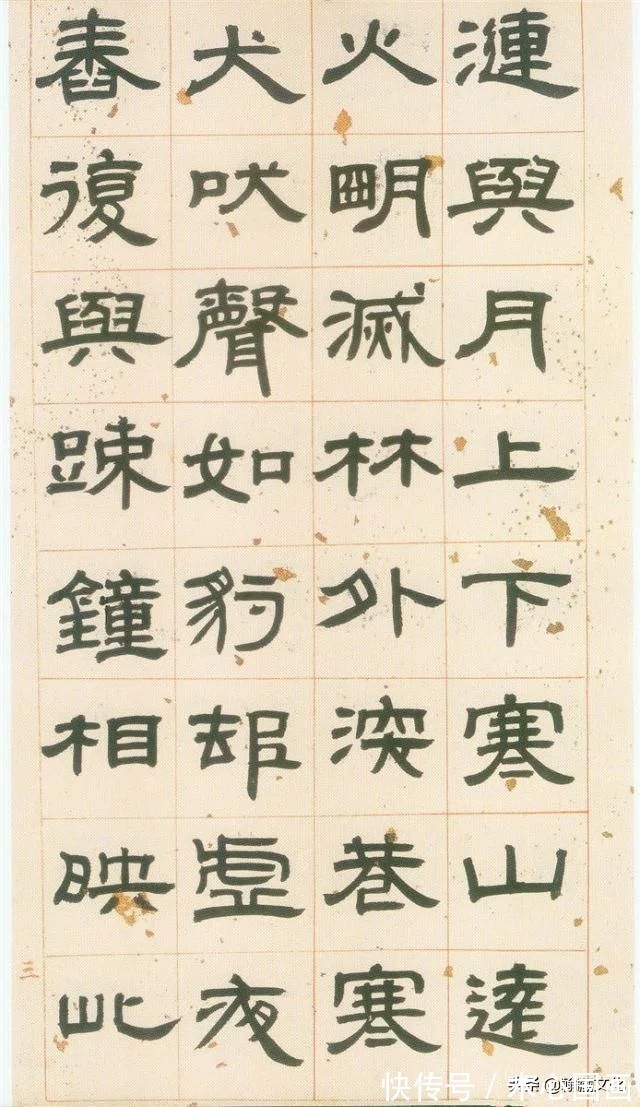 漣與月上下寒山遠
火朙滅林外深巷寒
犬吠聲如豹邨虛夜
舂復與踈鐘相映此
三
快传号 /
头条 @